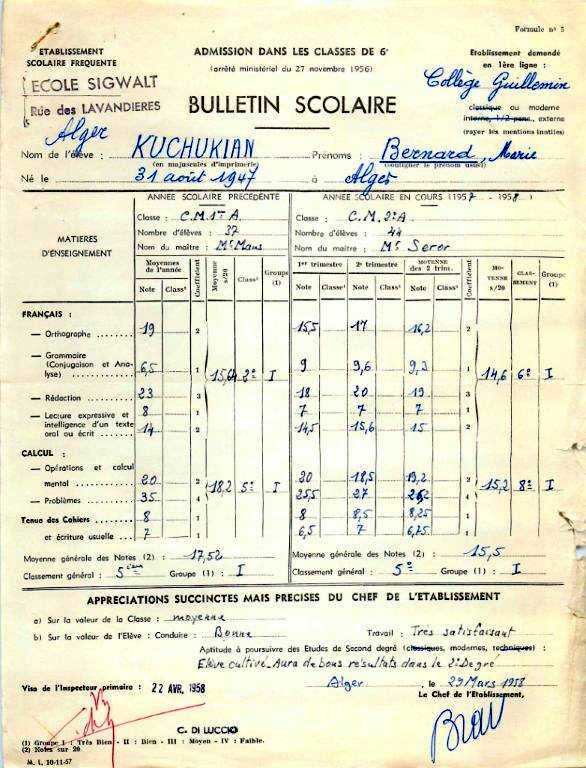 Formule n° 5
ETABLISSEMENT
SCOLAIRE FREQUENTE
ECOLE SIGWALT
Rue des LAVANDIERES
Alger
ADMISSION DANS LES CLASSES DE 6e
(arrêté ministériel du 27 novembre 1956)
BULLETIN SCOLAIRE
Etablissement demandé
en 1ère ligne :
Collège Guillemin
classique ou moderne
interne, 1/2 pens., externe
(rayer les mentions inutiles)
Nom de l'élève : KUCHUKIAN Prénoms : Bernard, Marie
(en majuscules d'imprimerie) (souligner le prénom usuel)
Né le 31 août 1947 à Alger
MATIERES D'ENSEIGNEMENT
ANNÉE SCOLAIRE PRÉCÉDENTE
Classe : C.M. 1re A
Nombre d'élèves : 37
Nom du maître : Mr Mans
ANNÉE SCOLAIRE EN COURS (1957 - 1958)
Classe : C.M. 2e A
Nombre d'élèves : 44
Nom du maître : Mr Seror
Moyennes de l'année Coefficient Moyenne s/20 Classt Groupe (1) 1er trimestre 2e trimestre MOYENNE des 2 trim. Coefficient MOYENNE s/20 CLASSEMENT Groupe (1)
Note Classt Note Classt Note Classt Note Classt
FRANÇAIS :
— Orthographe 19 2 15,5 17 16,2 2
— Grammaire (Conjugaison et Analyse) 6,5 1 15,64 2e I 9 9,6 9,3 1 14,6 6e I
— Rédaction 23 3 18 20 19 3
— Lecture expressive et 8 1 7 7 7 1
intelligence d'un texte oral ou écrit 14 2 14,5 15,6 15 2
CALCUL :
— Opérations et calcul mental 20 2 18,2 5e I 20 18,5 19,2 2 15,2 8e I
— Problèmes 35 4 25,5 27 26,2 4
Tenue des Cahiers 8 1 8 8,5 8,25 1
et écriture usuelle 7 1 6,5 7 6,75 1
Moyenne générale des Notes (2) : 17,52 Moyenne générale des Notes (2) : 15,5
Classement général : 5ème Groupe (1) : I Classement général : 5e Groupe (1) : I
APPRECIATIONS SUCCINCTES MAIS PRECISES DU CHEF DE L'ETABLISSEMENT
a) Sur la valeur de la Classe : moyenne
b) Sur la valeur de l'Elève : Conduite : Bonne Travail : Très satisfaisant
Aptitude à poursuivre des Etudes de Second degré (classiques, modernes, techniques) :
Elève cultivé. Aura de bons résultats dans le 2e Degré
Alger, le 29 Mars 1958
Visa de l'Inspecteur primaire : 22 AVR. 1958
Le Chef de l'Etablissement,
C. DI LUCCIO
(1) Groupe I : Très Bien - II : Bien - III : Moyen - IV : Faible.
(2) Notes sur 20
M. L. 10-11-57